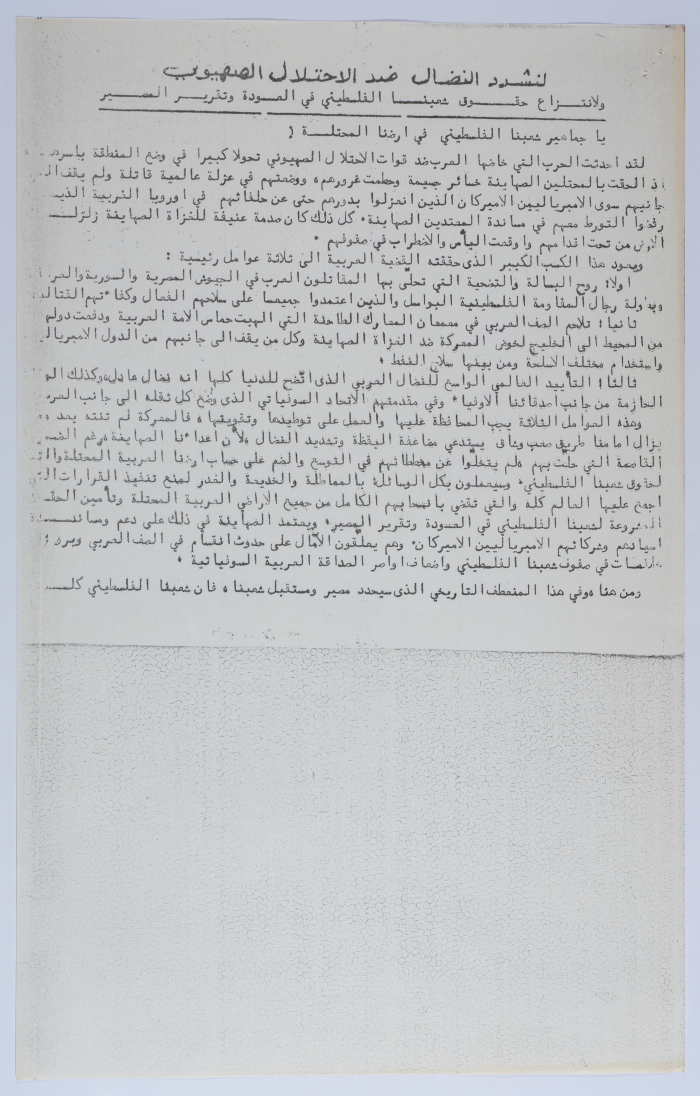 لنشدد النضال ضد الاحتلال الصهيوني
ولانتزاع حقوق شعبنا الفلسطيني في العودة وتقرير المصير
يا جماهير شعبنا الفلسطيني في ارضنا المحتلة !
لقد احدثت الحرب التي خاضها العرب ضد قوات الاحتلال الصهيوني تحولا كبيرا في وضع المنطقة باسرها
اذ الحقت بالمحتلين الصهاينة خسائر جسيمة وحطمت غرورهم، ووضعتهم في عزلة عالمية قاتلة ولم يقف الى
جانبهم سوى الامبرياليين الاميركان الذين انعزلوا بدورهم حتى عن حلفائهم في اوروبا الغربية الذين
رفضوا التورط معهم في مساندة المعتدين الصهاينة. كل ذلك كان صدمة عنيفة للغزاة الصهاينة زلزلت
الارض من تحت اقدامهم واوقعت اليأس والاضطراب في صفوفهم .
ويعود هذا الكسب الكبير الذى حققته القضية العربية الى ثلاثة عوامل رئيسية :
اولا: روح البسالة والتضحية التي تحلّى بها المقاتلون العرب في الجيوش المصرية والسورية
وبطولة رجال المقاومة الفلسطينية البواسل والذين اعتمدوا جميعا على سلاحهم الفعال وكفاءتهم القتالية
ثانيا: تلاحم الصف العربي في معمعان المعارك الطاحنة التي الهبت حماس الامة العربية ودفعت دولها
من المحيط الى الخليج لخوض المعركة ضد الغزاة الصهاينة وكل من يقف الى جانبهم من الدول الامبريالية
واستخدام مختلف الاسلحة ومن بينها سلاح النفط .
ثالثا: التأييد العالمي الواسع للنضال العربي الذى اتّضح للدنيا كلها انه نضال عادل، وكذلك
الحازمة من جانب اصدقائنا الاوفياء، وفي مقدمتهم الاتحاد السوفياتي الذى وضع كل ثقله الى جانب العرب
وهذه العوامل الثلاثة يجب المحافظة عليها والعمل على توطيدها وتقويتها، فالمعركة لم تنته بعد
يزال امامنا طريق صعب وشاق يستدعي مضاعفة اليقظة وتشديد النضال، لأن اعداءنا الصهاينة، رغم
القاصمة التي حلّت بهم، لم يتخلّوا عن مخططاتهم في التوسع والضم على حساب ارضنا العربية المحتلة
لحقوق شعبنا الفلسطيني، وسيعملون بكل الوسائل، بالمماطلة والخديعة والغدر لمنع تنفيذ القرارات التي
اجمع عليها العالم كله والتي تقضي بانسحابهم الكامل من جميع الاراضي العربية المحتلة وتأمين
المشروعة لشعبنا الفلسطيني في العودة وتقرير المصير، ويعتمد الصهاينة في ذلك على دعم ومساندة
اسيادهم وشركائهم الامبرياليين الاميركان، وهم يعلّقون الآمال على حدوث انقسام في الصف العربي
في صفوف شعبنا الفلسطيني واضعاف اواصر الصداقة العربية السوفياتية .
ومن هنا، وفي هذا المنعطف التاريخي الذى سيحدد مصير ومستقبل شعبنا، فان شعبنا الفلسطيني كله